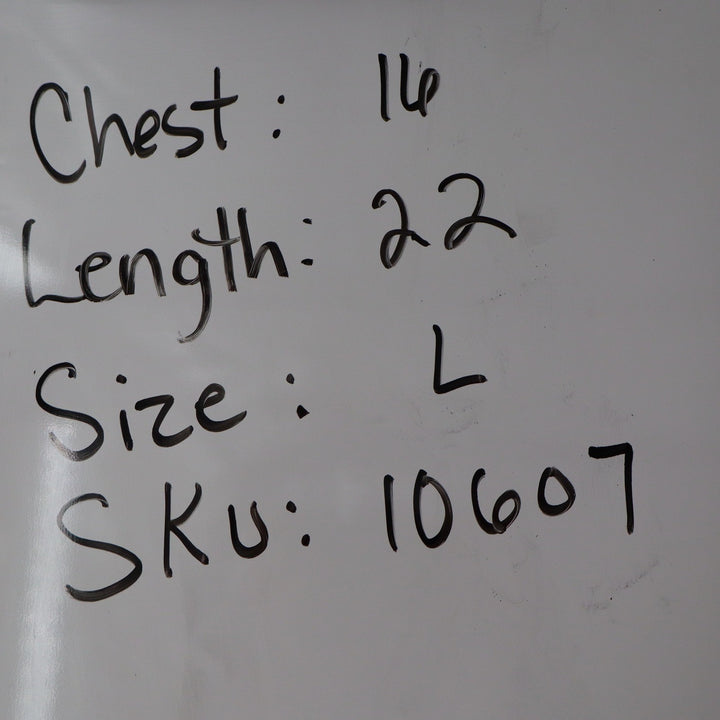 Chest: 16
Length: 22
Size: L
SKU: 10607